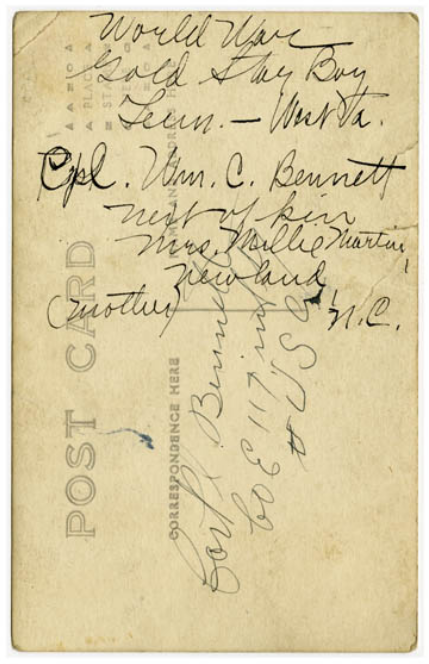 World War
Gold Star Boy
Tenn. — West Va.
Cpl. Wm. C. Bennett
next of kin
Mrs. Millie Martin,
Newland,
(mother) N.C.
POST CARD
CORRESPONDENCE HERE
NAME AND ADDRESS HERE
PLACE
Bennett
Co E 117 Inf
USA